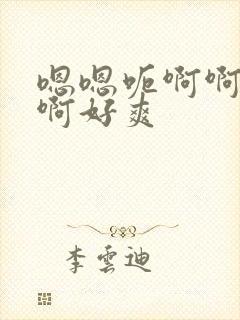 嗯嗯呃啊啊
啊好爽
李雲迪